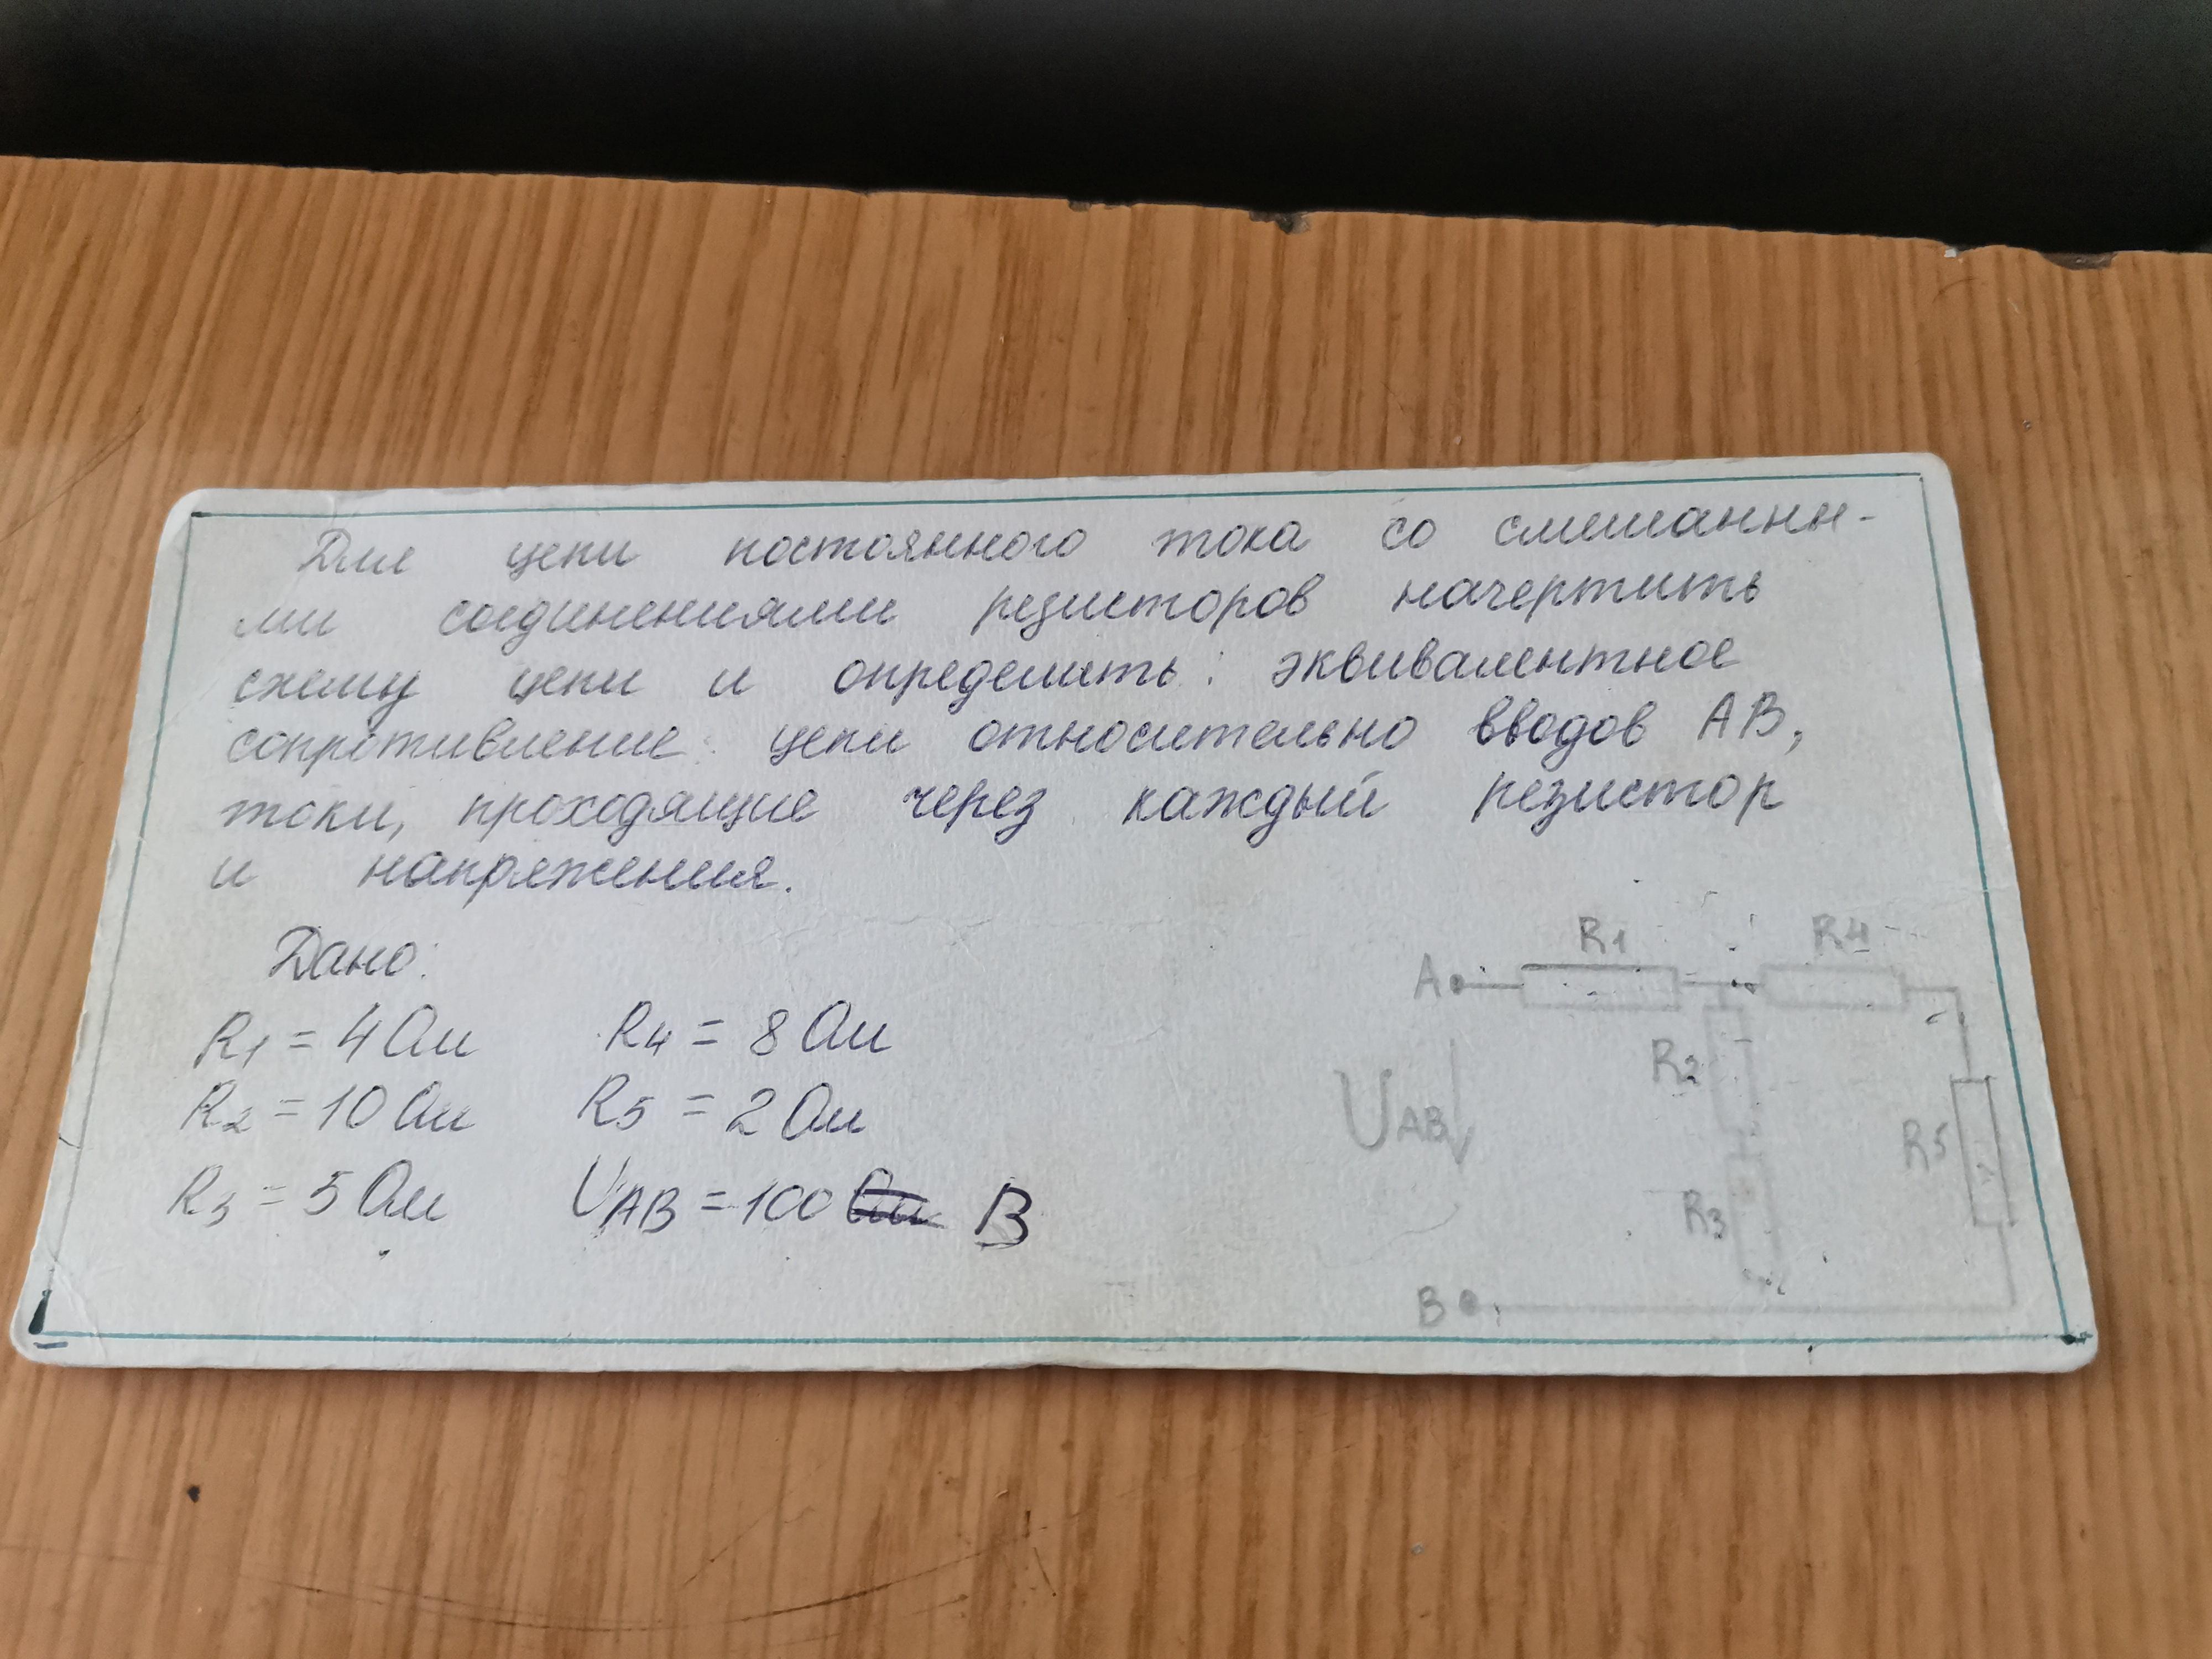 Для цепи постоянного тока со смешанны-
ми соединениями резисторов начертить
схему цепи и определить: эквивалентное
сопротивление цепи относительно вводов AB,
токи, проходящие через каждый резистор
и напряжения.
Дано:
R1 = 4 Ом R4 = 8 Ом
R2 = 10 Ом R5 = 2 Ом
R3 = 5 Ом UAB = 100 В
R1 R4
A
R2
UAB
R5
R3
B